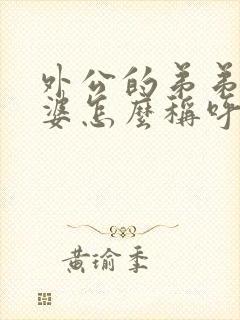 外公的弟弟
婆怎麼稱呼
黃瑜季